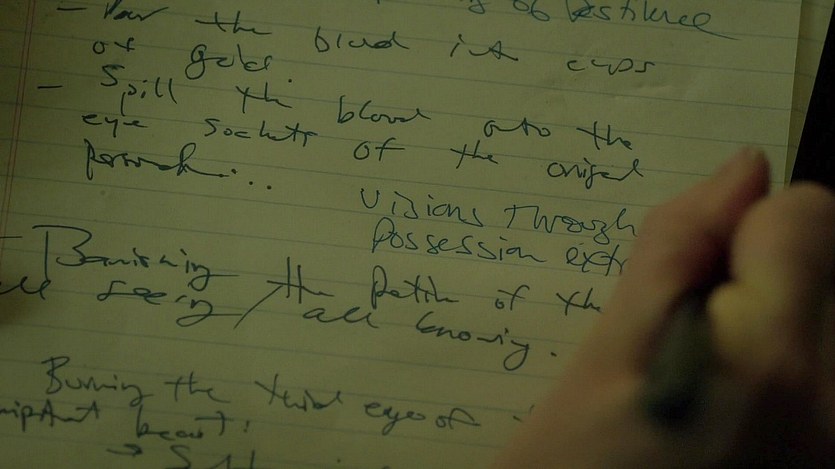 of Pestilence
- Pour the blood into cups
of gold.
- Spill the blood onto the
eye sockets of the
Visions Through
Possession
Banishing the path of the
seeing / all knowing.
Burning the third eye of
beast!